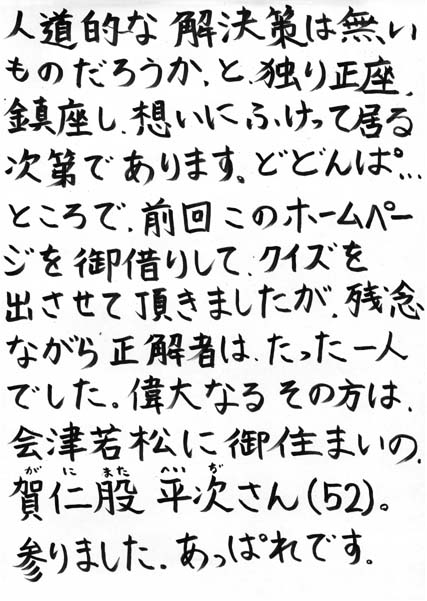 人道的な解決策は無い
ものだろうか、と、独り正座、
鎮座し、想いにふけって居る
次第であります。どどんぱ…
ところで、前回このホームペー
ジを御借りして、クイズを
出させて頂きましたが、残念
ながら正解者は、たった一人
でした。偉大なるその方は、
会津若松に御住まいの、
がにまた へいじ
賀仁股 平次さん(52)。
参りました。あっぱれです。